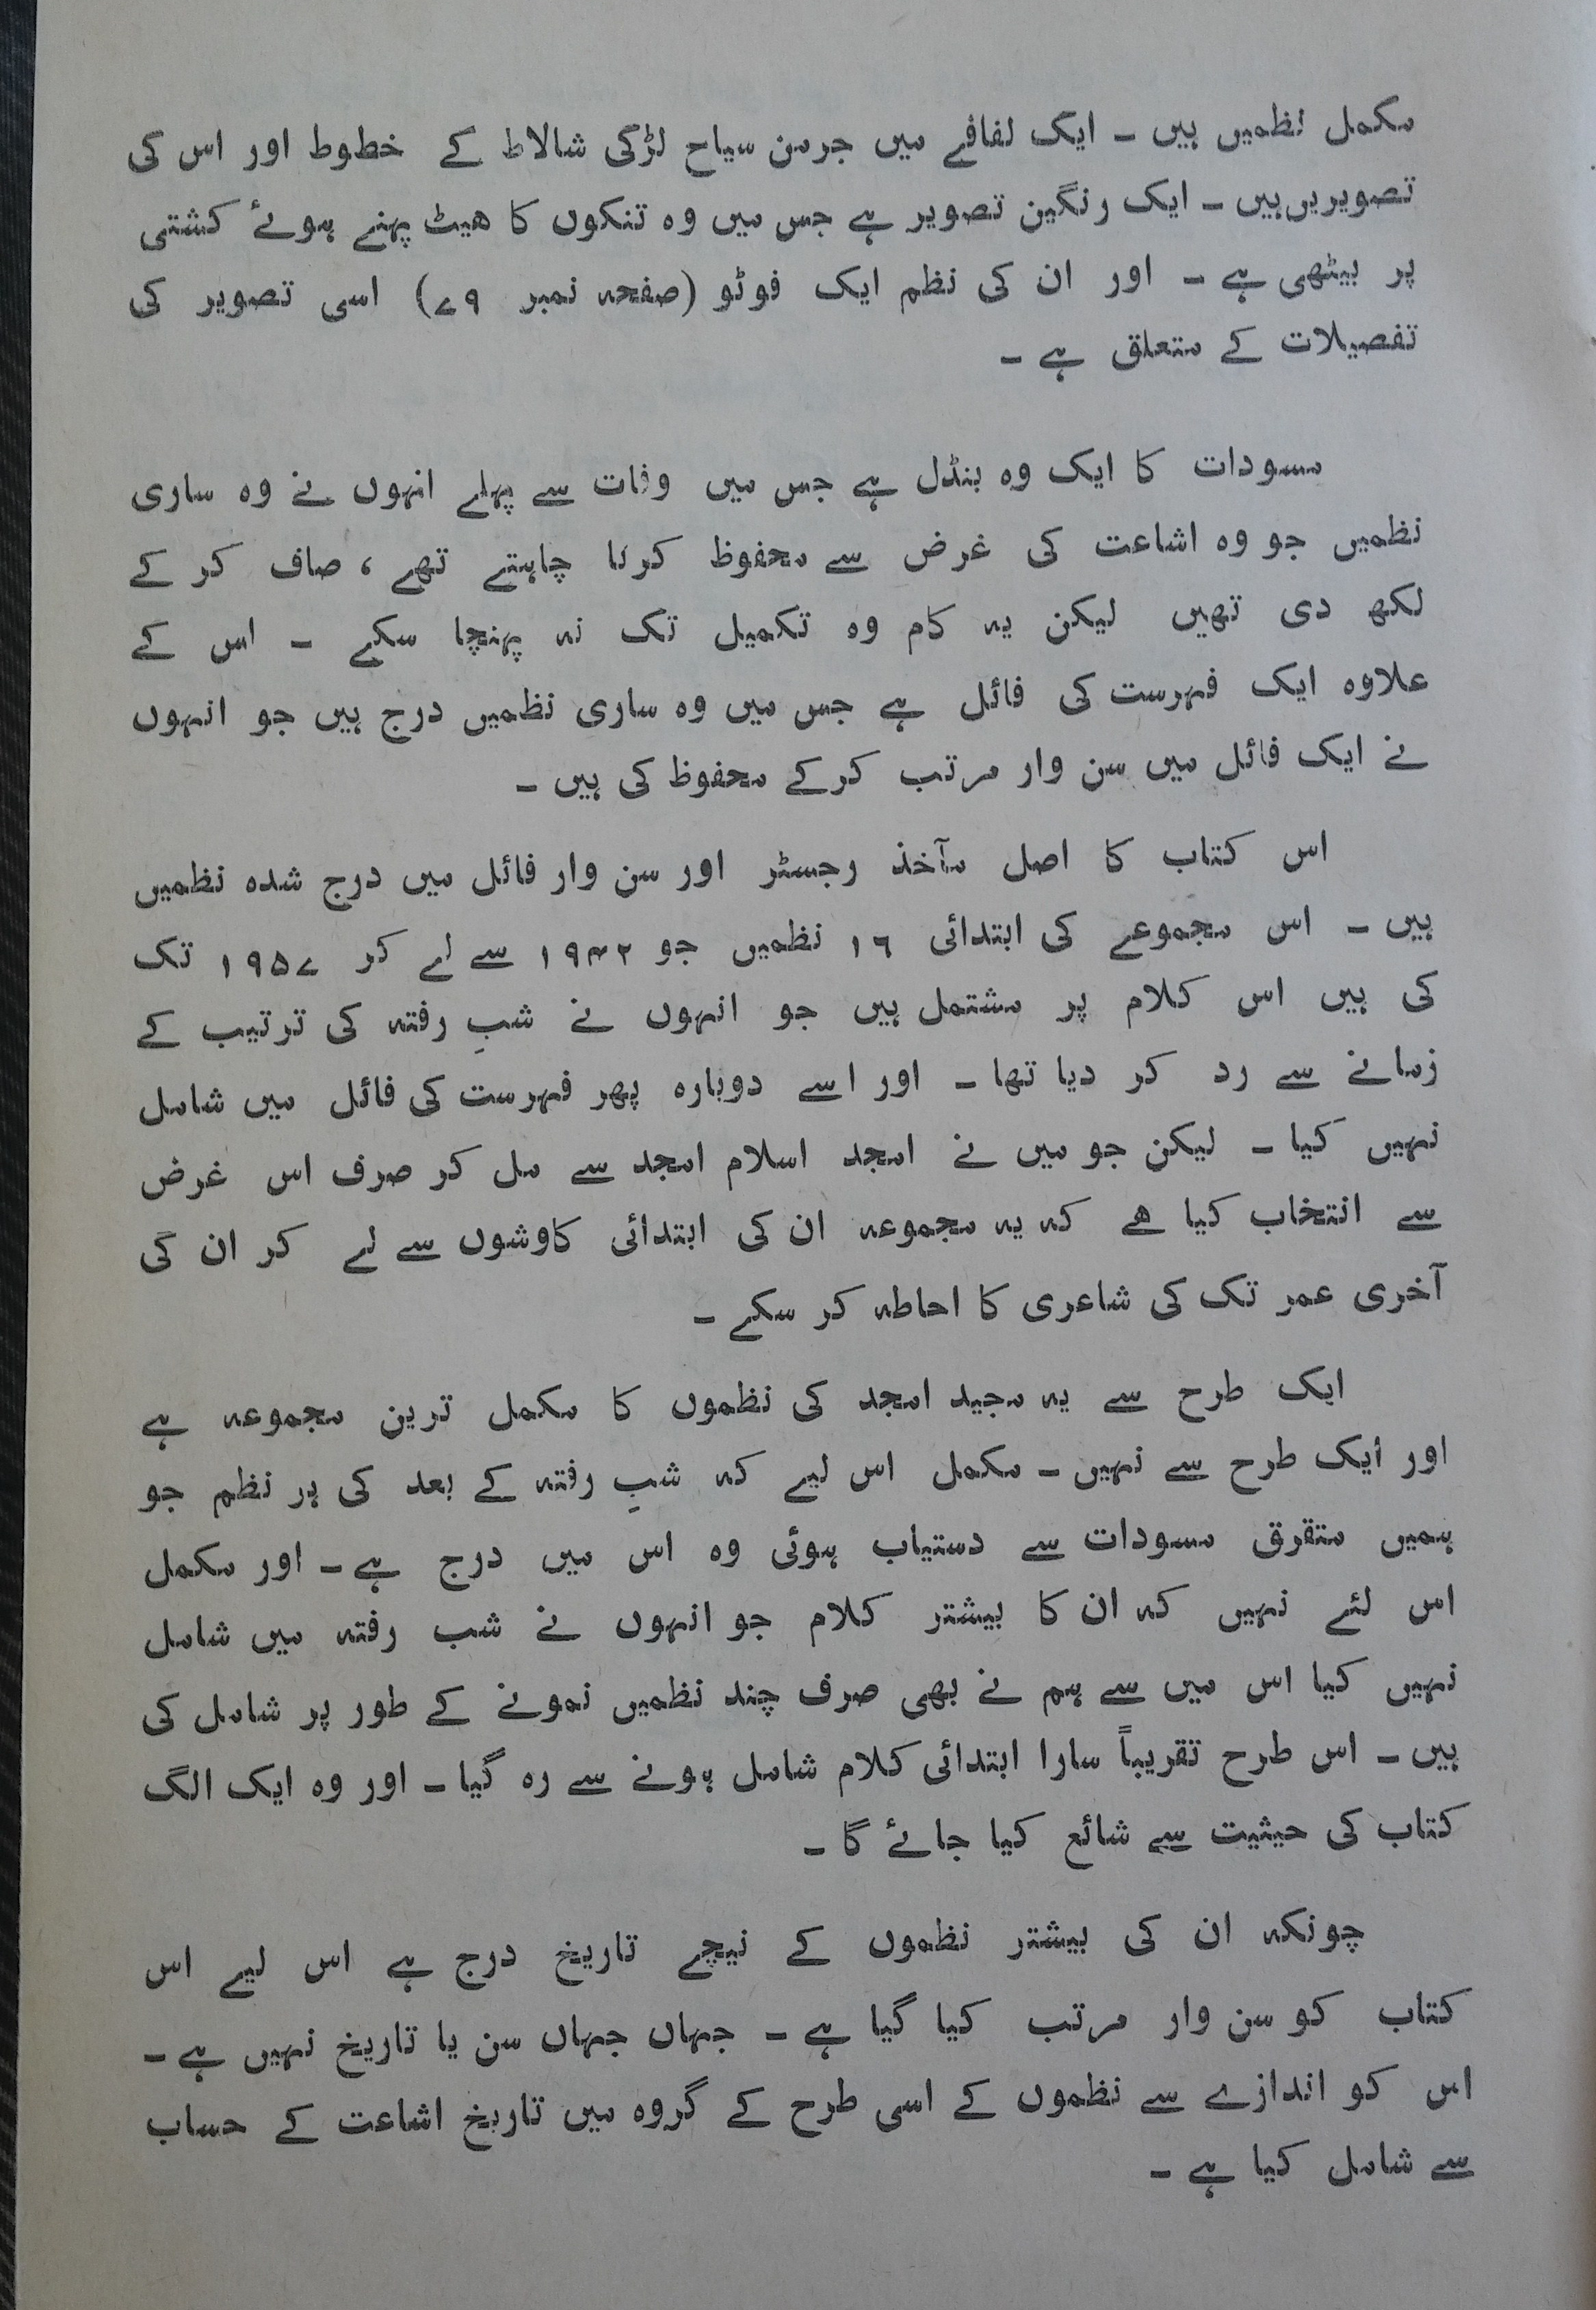 مکمل نظمیں ہیں ۔ ایک لفافے میں جرمن سیاح لڑکی شالاط کے خطوط اور اس کی
تصویریں ہیں ۔ ایک رنگین تصویر ہے جس میں وہ تنکوں کا ھیٹ پہنے ہوئے کشتی
پر بیٹھی ہے ۔ اور ان کی نظم ایک فوٹو (صفحہ نمبر ۷۹) اسی تصویر کی
تفصیلات کے متعلق ہے ۔
مسودات کا ایک وہ بنڈل ہے جس میں وفات سے پہلے انہوں نے وہ ساری
نظمیں جو وہ اشاعت کی غرض سے محفوظ کرنا چاہتے تھے ، صاف کر کے
لکھ دی تھیں لیکن یہ کام وہ تکمیل تک نہ پہنچا سکے ۔ اس کے
علاوہ ایک فہرست کی فائل ہے جس میں وہ ساری نظمیں درج ہیں جو انہوں
نے ایک فائل میں سن وار مرتب کرکے محفوظ کی ہیں ۔
اس کتاب کا اصل مآخذ رجسٹر اور سن وار فائل میں درج شدہ نظمیں
ہیں ۔ اس مجموعے کی ابتدائی ۱۶ نظمیں جو ۱۹۴۲ سے لے کر ۱۹۵۷ تک
کی ہیں اس کلام پر مشتمل ہیں جو انہوں نے شبِ رفتہ کی ترتیب کے
زمانے سے رد کر دیا تھا ۔ اور اسے دوبارہ پھر فہرست کی فائل میں شامل
نہیں کیا ۔ لیکن جو میں نے امجد اسلام امجد سے مل کر صرف اس غرض
سے انتخاب کیا ھے کہ یہ مجموعہ ان کی ابتدائی کاوشوں سے لے کر ان کی
آخری عمر تک کی شاعری کا احاطہ کر سکے ۔
ایک طرح سے یہ مجید امجد کی نظموں کا مکمل ترین مجموعہ ہے
اور ایک طرح سے نہیں ۔ مکمل اس لیے کہ شبِ رفتہ کے بعد کی ہر نظم جو
ہمیں متفرق مسودات سے دستیاب ہوئی وہ اس میں درج ہے ۔ اور مکمل
اس لئے نہیں کہ ان کا بیشتر کلام جو انہوں نے شب رفتہ میں شامل
نہیں کیا اس میں سے ہم نے بھی صرف چند نظمیں نمونے کے طور پر شامل کی
ہیں ۔ اس طرح تقریباً سارا ابتدائی کلام شامل ہونے سے رہ گیا ۔ اور وہ ایک الگ
کتاب کی حیثیت سے شائع کیا جائے گا ۔
چونکہ ان کی بیشتر نظموں کے نیچے تاریخ درج ہے اس لیے اس
کتاب کو سن وار مرتب کیا گیا ہے ۔ جہاں جہاں سن یا تاریخ نہیں ہے ۔
اس کو اندازے سے نظموں کے اسی طرح کے گروہ میں تاریخ اشاعت کے حساب
سے شامل کیا ہے ۔